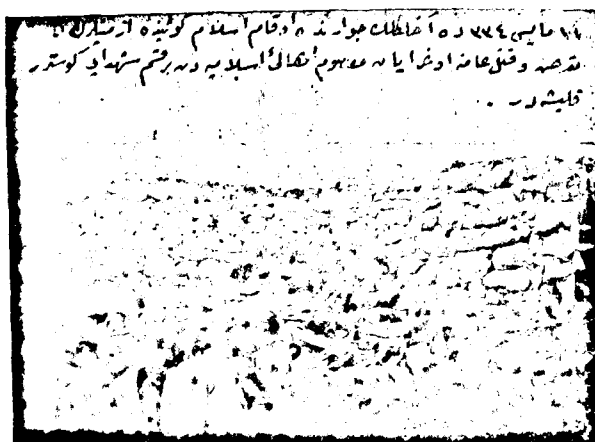 ١١ مايس ٣٣٤ ده جوارنده اسلام كوينده ارمنيلرك
تعرض و قتل عامنه اوغرايان معصوم اهالئ اسلاميه دن برقسم شهدايى كوسترر
قليشه در .